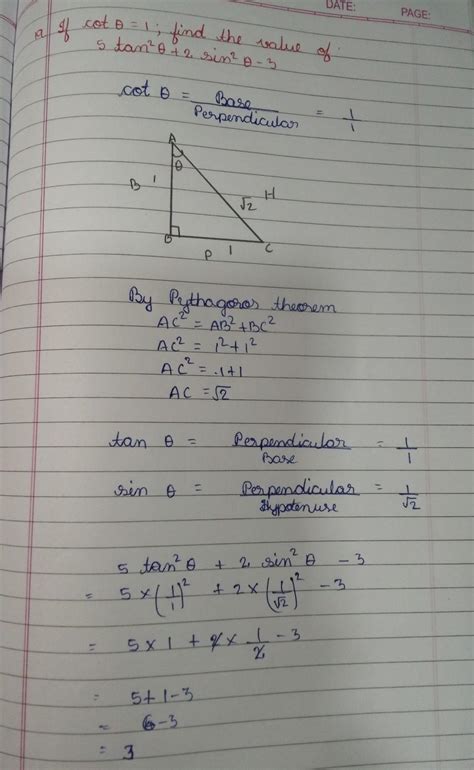 DATE:
PAGE:
a If cot θ = 1; find the value of:
5 tan²θ + 2 sin²θ - 3
cot θ = Base/Perpendicular = 1/1
A
θ
B 1
√2 H
B
P 1
C
By Pythagoros theorem
AC² = AB² + BC²
AC² = 1² + 1²
AC² = 1+1
AC = √2
tan θ = Perpendicular/Base = 1/1
sin θ = Perpendicular/Hypotenuse = 1/√2
5 tan²θ + 2 sin²θ - 3
= 5 × (1/1)² + 2 × (1/√2)² - 3
= 5 × 1 + 2 × 1/2 - 3
= 5+1-3
= 6-3
= 3